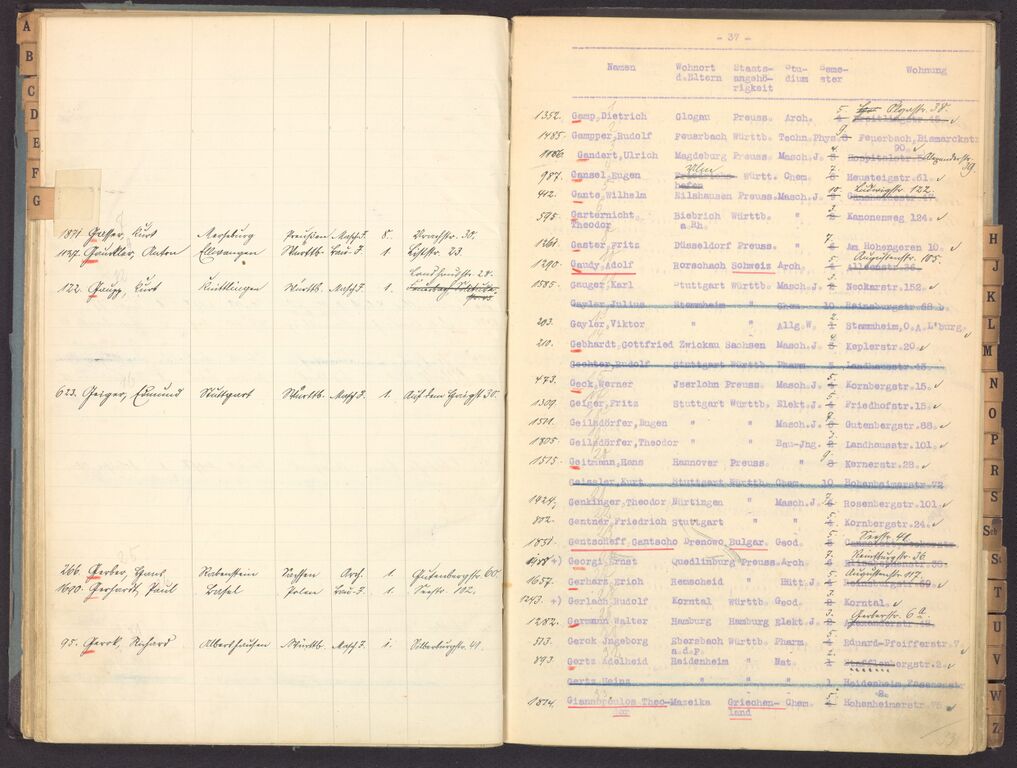 A
B
C
D
E
F
G
1871. Gasser, Kurt Merseburg Preußen Masch.I. 8.
1127. Gauckler, Anton Ellwangen Württb. Bau-I. 1. 23.
Landhausstr. 28.
122. Gaupp, Kurt Württb. Masch.I. 1.
623. Geiger, Edmund Stuttgart Württb. Masch.I. 1. Auf dem Haigst 30.
266. Gerber, Hans Rabenstein Sachsen Arch. 1. Gutenbergstr. 60.
1690. Gerhardt, Paul Polen Bau-I. 1. Seestr. 102.
95. Gerok, Richard Albershausen Württb. Masch.I. 1. Silberburgstr. 41.
- 37 -
Namen Wohnort Staats- Stu- Seme- Wohnung
d.Eltern angehö- dium ster
rigkeit
1352. Gamp,Dietrich Glogau Preuss. Arch. 5. Olgastr. 38.
1485. Gampper,Rudolf Feuerbach Württb. Techn.Phys. 9. Feuerbach,Bismarckstr
90.
1086. Gandert,Ulrich Magdeburg Preuss. Masch.J. 4. Alexanderstr. 39.
987. Gansel,Eugen Ulm Württ. Chem. 7. Heusteigstr.61.
412. Gante,Wilhelm Eilshausen Preuss.Masch.J. 10. Ludwigstr. 122.
595. Garternicht, Biebrich Württb. " 3. Kanonenweg 124.
Theodor a.Rh.
1261. Gaster,Fritz Düsseldorf Preuss. " 7. Am Hohengeren 10.
1290. Gaudy,Adolf Rorschach Schweiz Arch. 5. Augustenstr. 105.
1585. Gauger,Karl Stuttgart Württb. Masch.J. 3. Neckarstr.152.
Gayler,Julius Stammheim " Chem. 10 Reinsburgstr.68 b.
203. Gayler,Viktor " " Allg.W. 2. Stammheim,O.A.L'burg.
210. Gebhardt,Gottfried Zwickau Sachsen Masch.J. 4. Keplerstr.20.
Gechter,Rudolf Stuttgart Württb. Pharm. Landhausstr.
473. Geck,Werner Jserlohn Preuss. Masch.J. 5. Kornbergstr.15.
1309. Geiger,Fritz Stuttgart Württb. Elekt.J. 5. Friedhofstr.15.
1511. Geilsdörfer,Eugen " " Masch.J. 7. Gutenbergstr.88.
1805. Geilsdörfer,Theodor " " Bau-Jng. 3. Landhausstr.101.
1515. Geitmann,Hans Hannover Preuss. " 9. Kernerstr.28.
Geissler,Kurt Stuttgart Württb. Chem. 10 Hohenheimerstr.72
1924. Genkinger,Theodor Nürtingen " Masch.J. 7. Rosenbergstr.101.
802. Gentner,Friedrich Stuttgart " " 5. Kornbergstr.24.
1851. Gentscheff,Gantscho Drenowo,Bulgar. Geod. 5. Seestr. 41.
+) Georgi,Ernst Quedlinburg Preuss.Arch. 7. Reinsburgstr. 36
1657. Gerhard,Erich Remscheid " Hütt.J. 5. Augustenstr. 117.
1243. +) Gerlach,Rudolf Korntal Württb. Geod. 3. Korntal.
1282. Germann,Walter Hamburg Hamburg Elekt.J. 3. Gerberstr. 6 a.
513. Gerok,Jngeborg Ebersbach Württb. Pharm. 5. Eduard-Pfeifferstr.7
a.d.F.
893. Gertz,Adelheid Heidenheim " Nat. 2.
Gertz,Heinz " " " 1 Heidenheim,
1814. Giannopoulos,Theo- Mazeika Griechen- Chem. 5. Hohenheimerstr.75 a.
dor land
H
J
K
L
M
N
O
P
R
S
Sch
St
T
U
V
W
Z